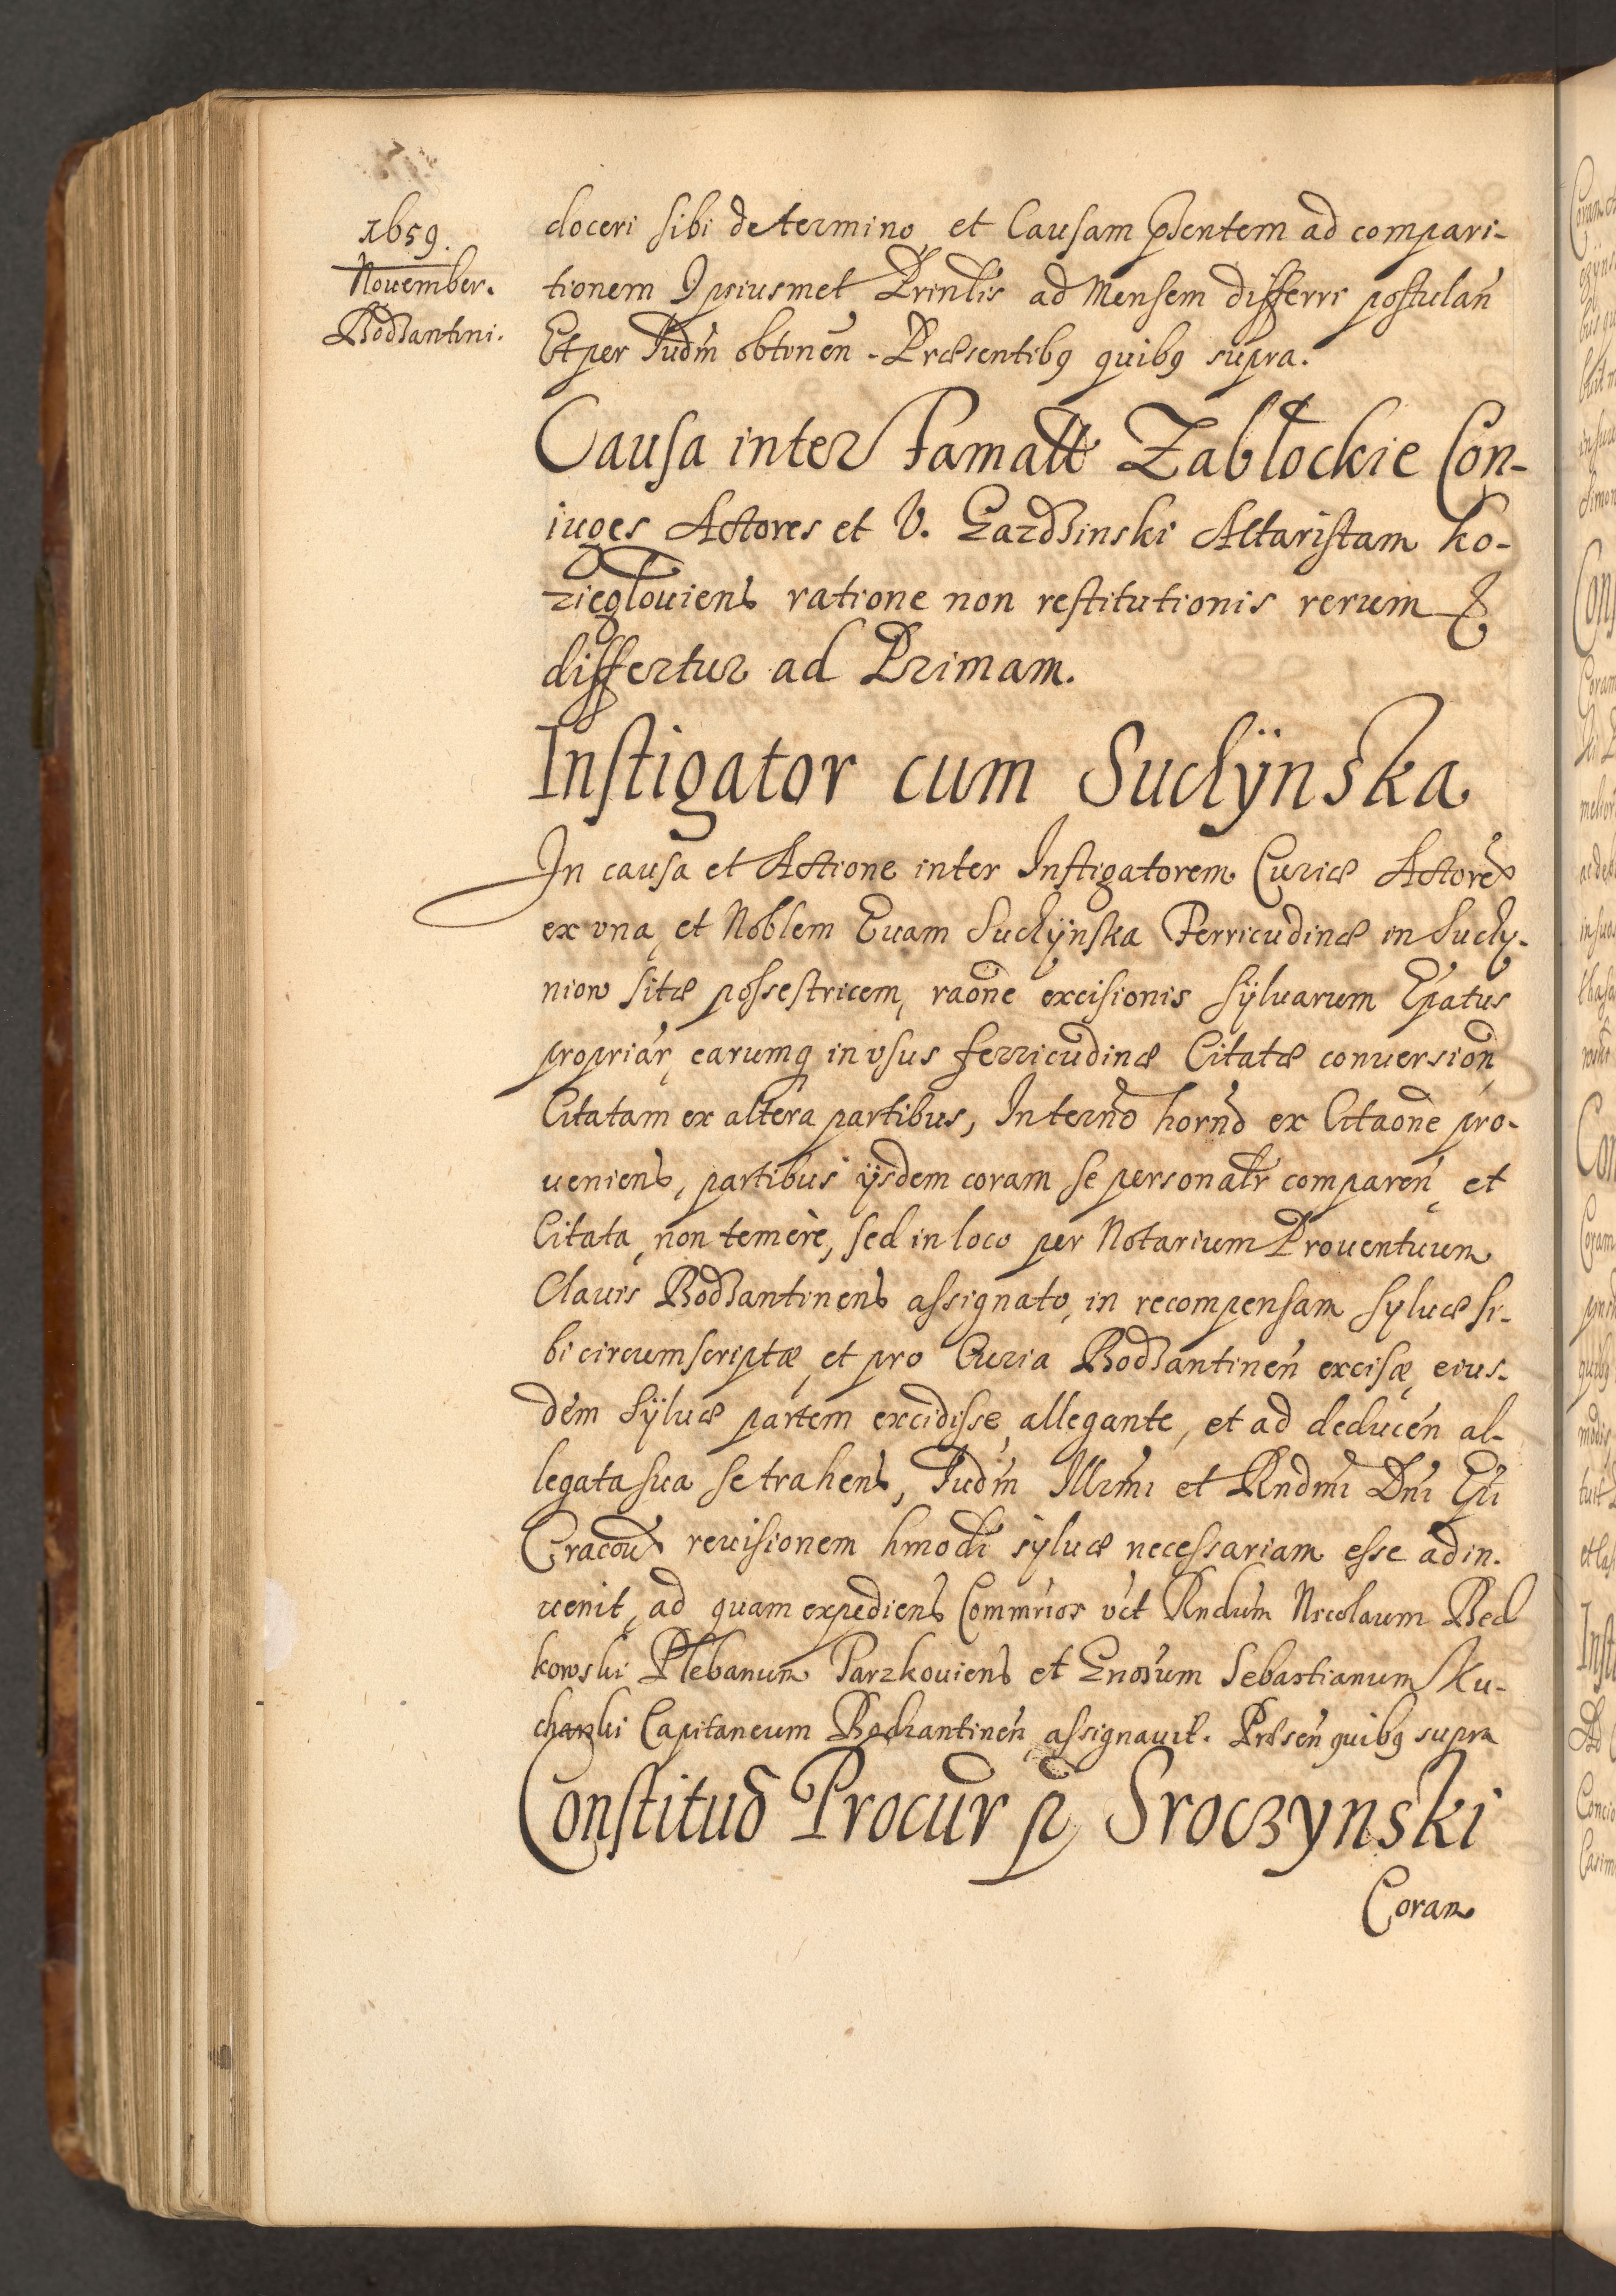 1659.
November.
Bodzantini.
doceri sibi de termino et Causam pñsentem ad compari-
tionem Ipsiusmet Prinlis ad Mensem differri postulań
Et per Iudm̃ obtineń. Præsentibq quibq supra.
Causa inter Famatt Zabłockie Con-
iuges Actores et V. Gardzinski Altaristam Ko-
ziegloviens ratione non restitutionis rerum &
differtur ad Primam.
Instigator cum Suchÿnska
In causa et Actione inter Instigatorem Curiæ Actorē
ex vna, et Noblem Euam Suchÿnska Ferricudinæ in Suchy-
niow sitæ possestricem, raõne excisionis Sÿluarum Epatus
propriar, earumq in vsus ferricudinæ Citatæ conversion
Citatam ex altera partibus, In termo horno ex Citaõne pro-
ueniens, partibus ijsdem coram se personalr compareń, et
Citata, non temerè, sed in loco per Notarium Prouentuum
Clauis Bodzantinens assignato, in recompensam Syluæ si-
bi circumscriptæ, et pro Curia Bodzantineń excisæ, eius-
dem Sÿluæ partem excidisse allegante, et ad deduceń al-
legata sua se trahens, Iudm̃ Illrmi et Rndmi Dni Epi
Cracou reuisionem hmodi syluæ necessariam esse adin-
uenit, ad quam expediens Commrios vct Rndum Nicolaum Bed
kowski Plebanum Parzkouiens et Gnosum Sebastianum Ku-
charski Capitaneum Bodzantineń, assignauit. Præseń quibq supra
Constitud Procur p Sroczynski
Coram